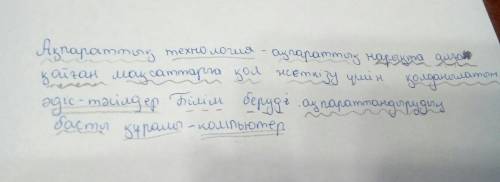 Ақпараттық технология - ақпараттық нарықта
қойған мақсаттарға қол жеткізу үшін қолданылатын
әдіс-тәсілдер Білім беруді ақпараттандырудың
басты құралы - компьютер